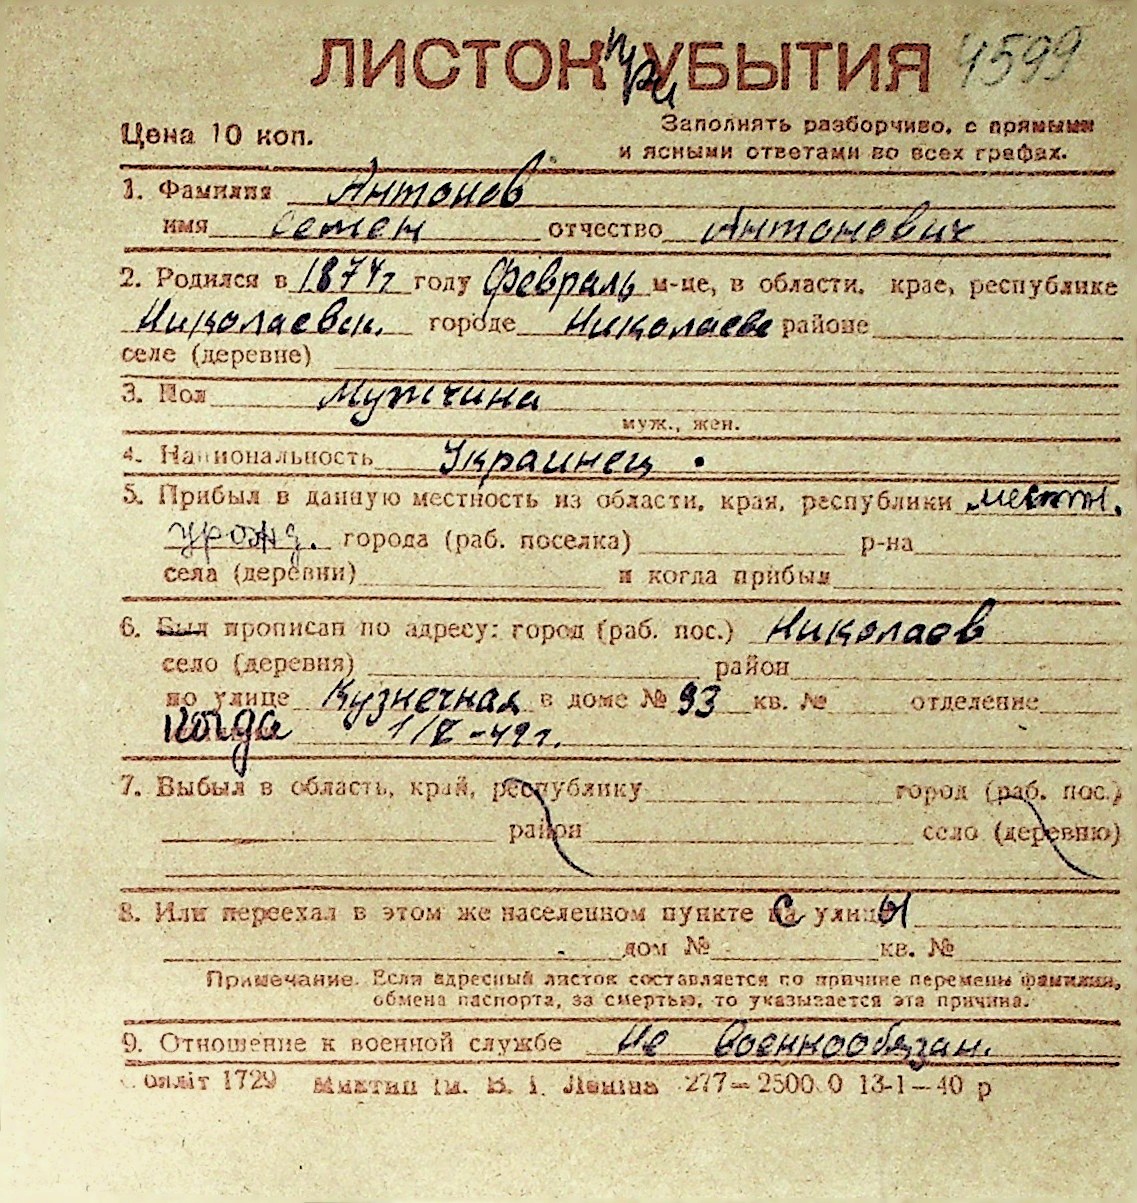 ЛИСТОК при УБЫТИЯ 4599
Цена 10 коп.
Заполнять разборчиво, с прямыми
и ясными ответами во всех графах.
1. Фамилия Антонов
имя Семен отчество Антонович
2. Родился в 1874г году февраль м-це, в области, крае, республике
Николаевск. городе Николаеве районе
селе (деревне)
3. Пол Мужчина
муж., жен.
4. Национальность Украинец
5. Прибыл в данную местность из области, края, республики местн.
урожд. города (раб. поселка) р-на
села (деревни) и когда прибыл
6. Был прописан по адресу: город (раб. пос.) Николаев
село (деревня) район
по улице Кузнечная в доме № 93 кв. № отделение
когда
7. Выбыл в область, край, республику город (раб. пос.)
район село (деревню)
8. Или переехал в этом же населенном пункте с улицы
дом № кв. №
Примечание. Если адресный листок составляется по причине перемены фамилии,
обмена паспорта, за смертью, то указывается эта причина.
9. Отношение к военной службе Не военнообязан.
1729 ім. В. І. Леніна 277—2500 0 13-1—40 р